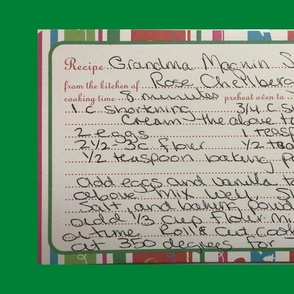 Recipe Grandma Magnin S
from the kitchen of Rose Chellberg
cooking time 8 minutes preheat oven to
1 c shortening 3/4 c su
Cream the above to
2 eggs 1 teasp
2 1/2 - 3c flour 1/2 tea
1/2 teaspoon baking p
Add eggs and vanilla to
above. Mix well. S
Salt, and baking powd
add 1/3 cup flour mi
a time. Roll & Cut. Cook
at 350 degrees for